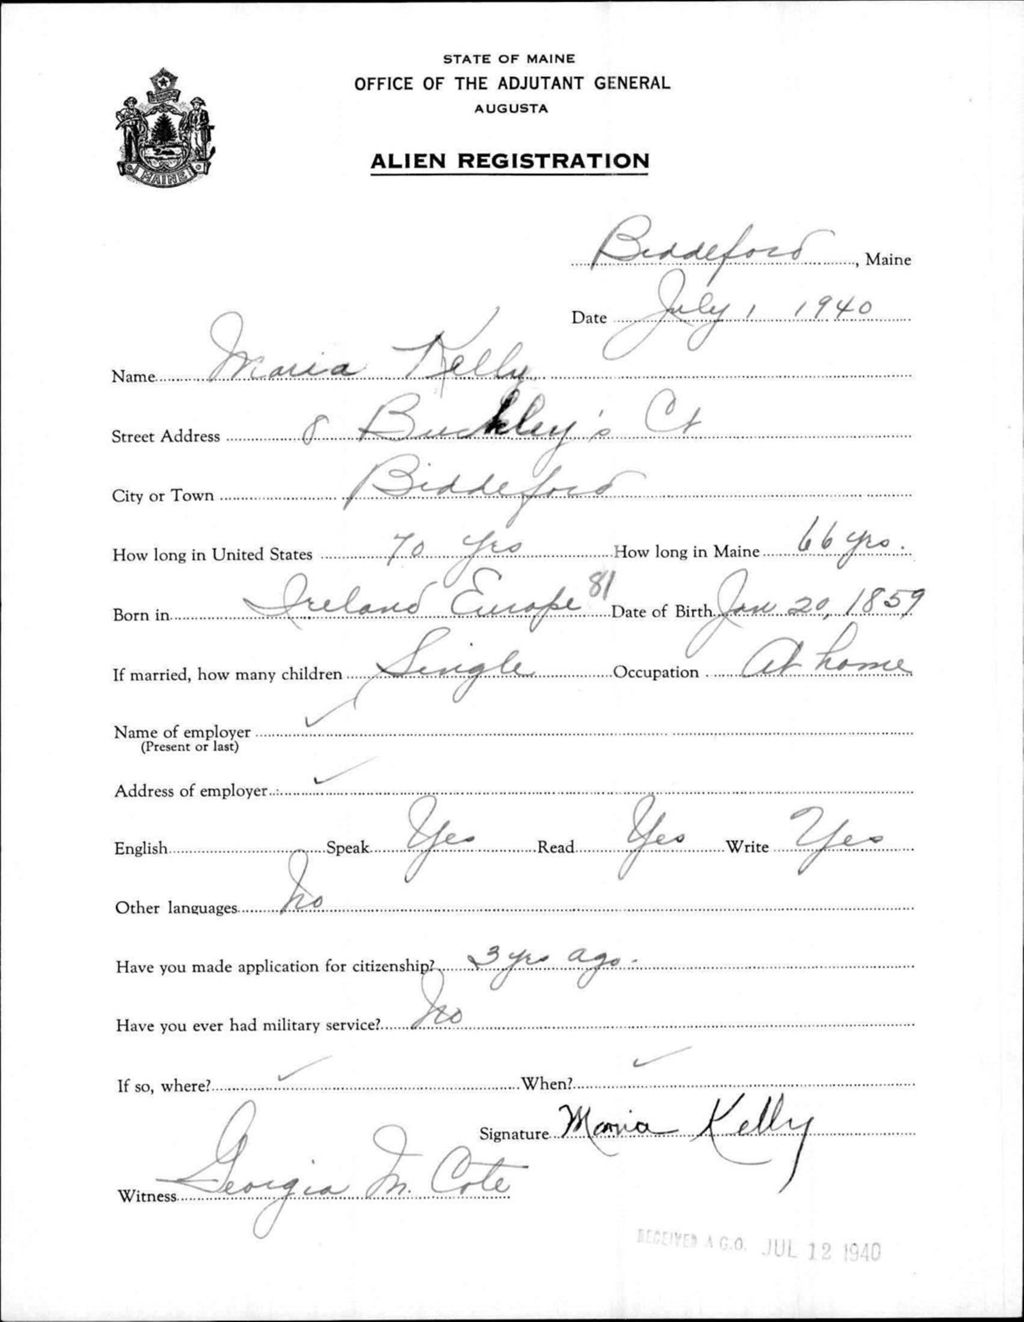 STATE OF MAINE
OFFICE OF THE ADJUTANT GENERAL
AUGUSTA
ALIEN REGISTRATION
MAINE
Biddeford, Maine
Date July 1, 1940
Name Maria Kelly
Street Address 8 Buckley's Ct
City or Town Biddeford
How long in United States 70 yrs How long in Maine 66 yrs.
Born in Ireland Europe 81 Date of Birth Jan 20, 1859
If married, how many children Single Occupation At home
Name of employer
(Present or last)
Address of employer
English Speak Yes Read Yes Write Yes
Other languages No
Have you made application for citizenship? 3 yrs ago.
Have you ever had military service? No
If so, where? When?
Signature Maria Kelly
Witness Georgia M. Cote
RECEIVED A.G.O. JUL 12 1940